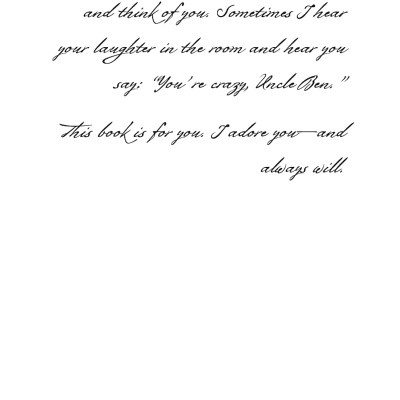 and think of you. Sometimes I hear
your laughter in the room and hear you
say: "You're crazy, Uncle Ben."
This book is for you. I adore you—and
always will.